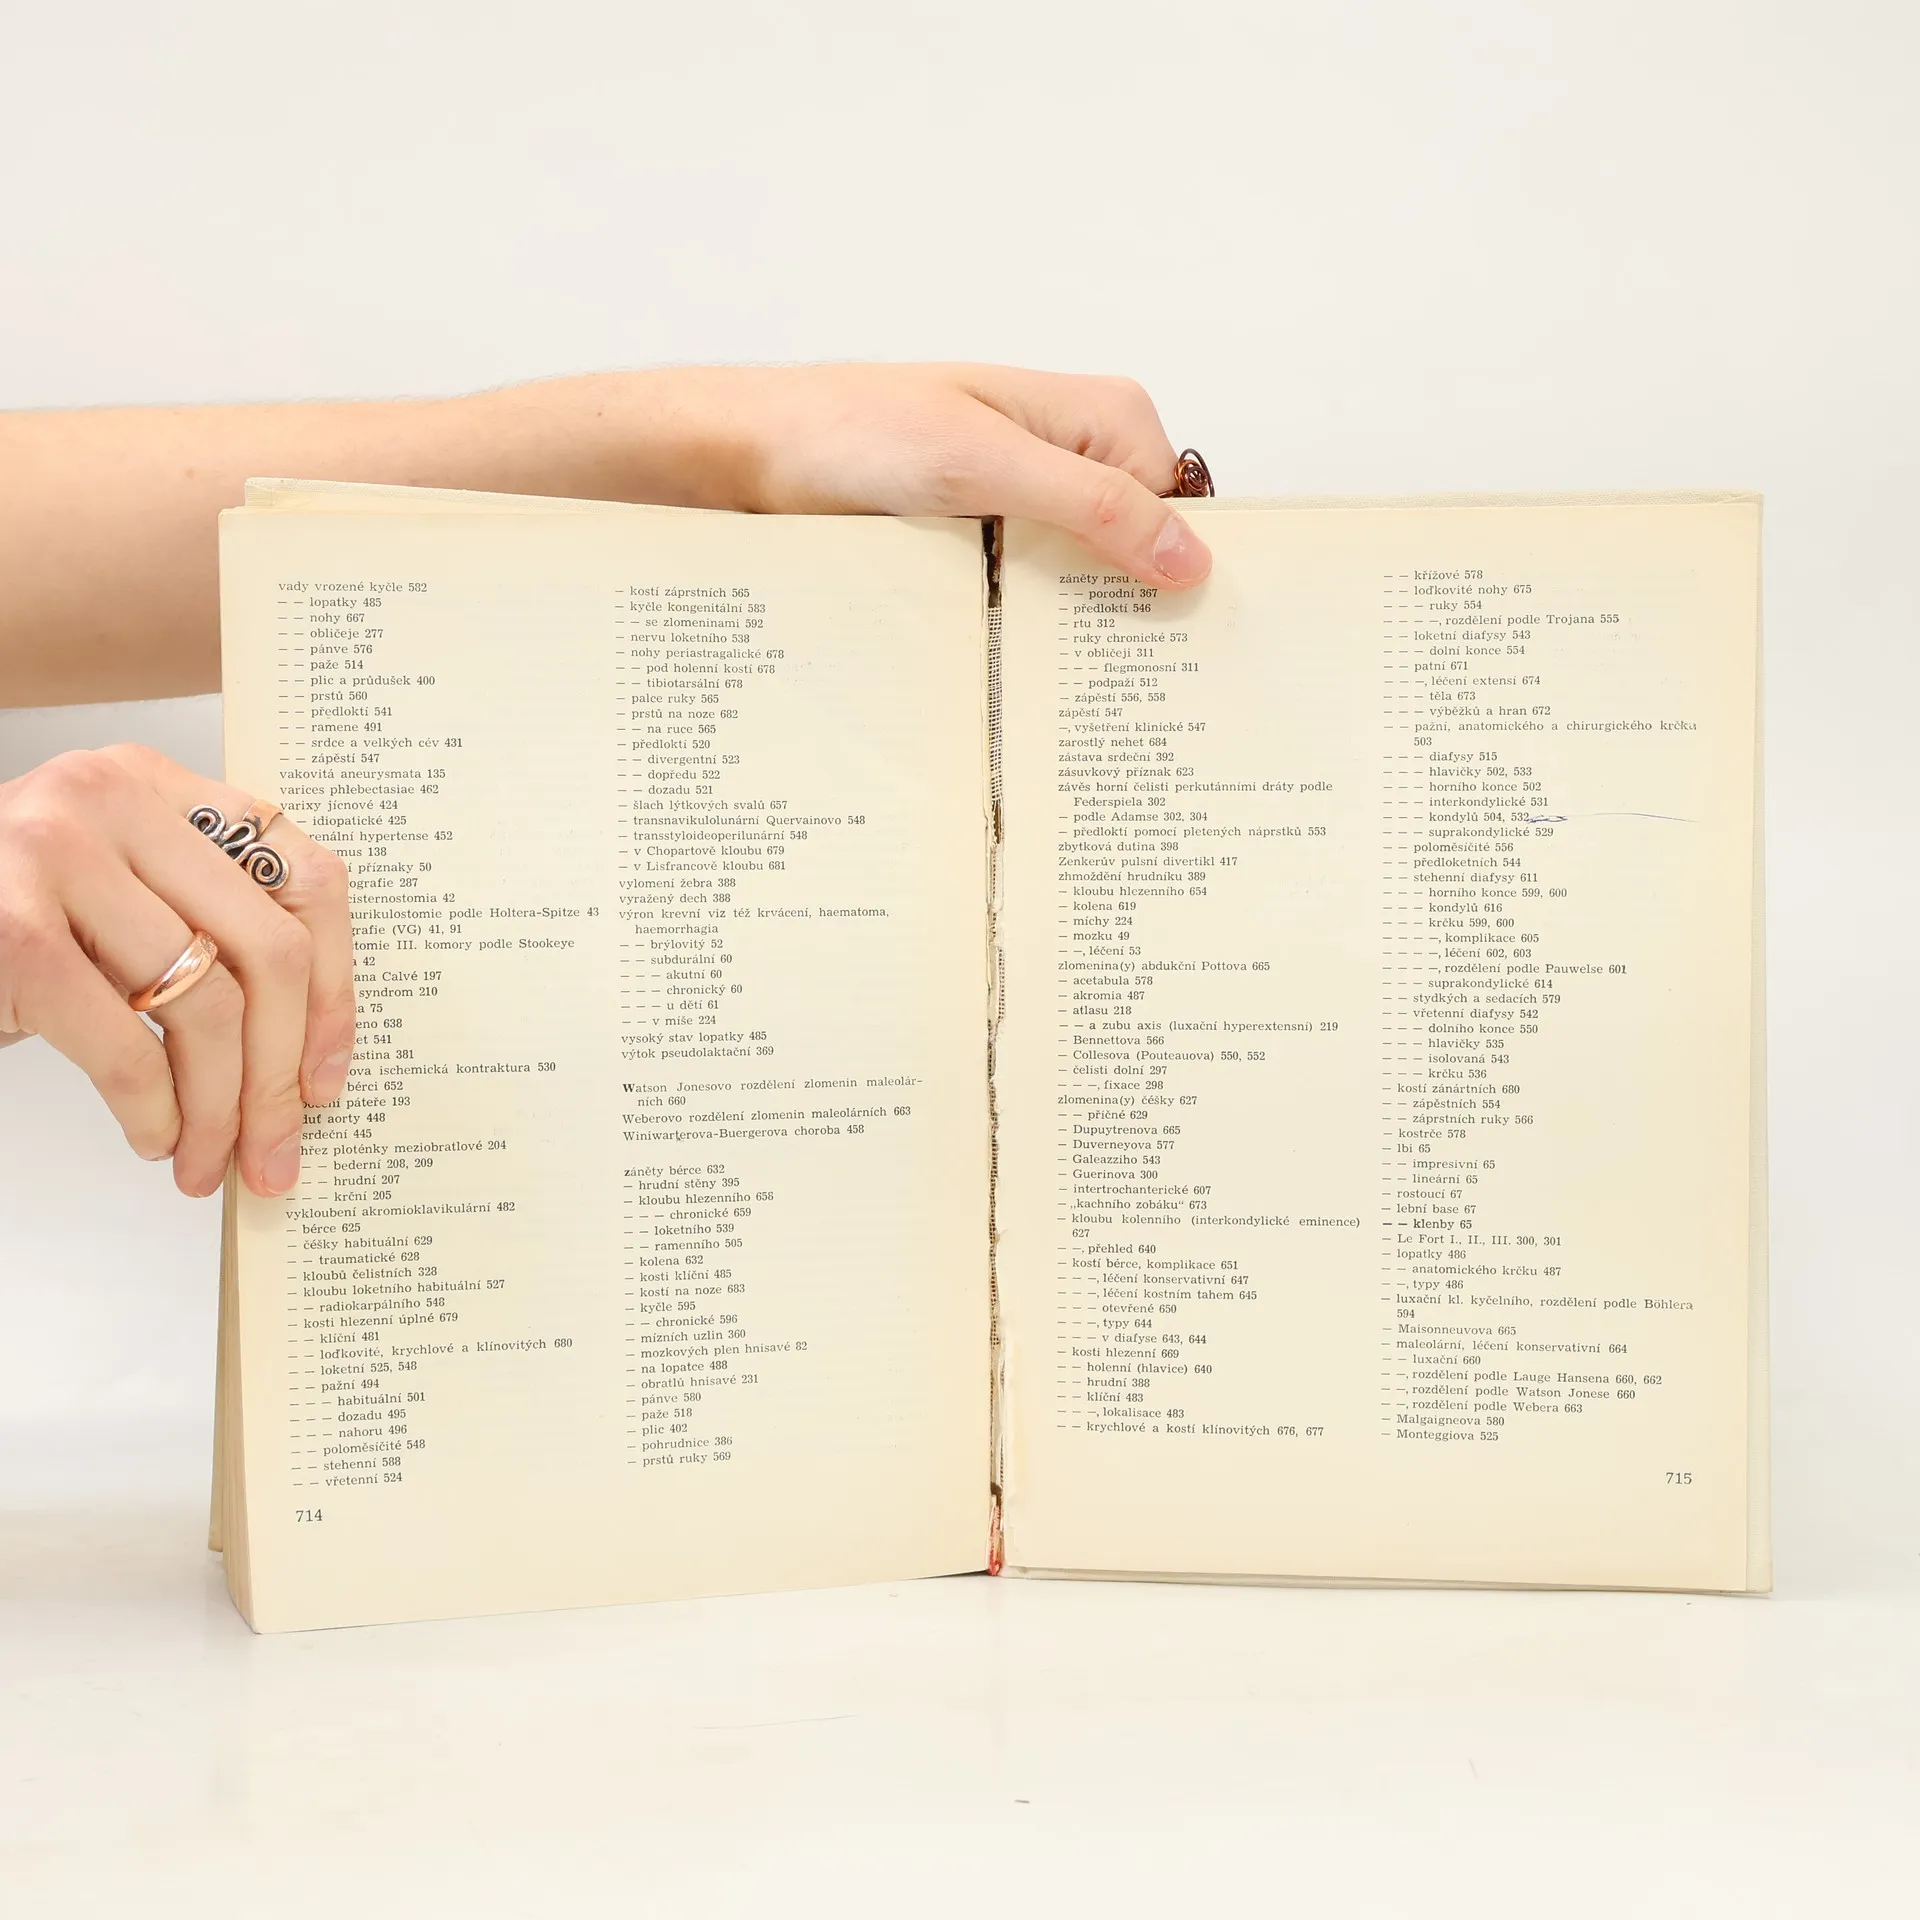 vady vrozené kyčle 582
— — lopatky 485
— — nohy 667
— — obličeje 277
— — pánve 576
— — paže 514
— — plic a průdušek 400
— — prstů 560
— — předloktí 541
— — ramene 491
— — srdce a velkých cév 431
— — zápěstí 547
vakovitá aneurysmata 135
varices phlebectasiae 462
varixy jícnové 424
— idiopatické 425
renální hypertense 452
138
příznaky 50
287
42
podle Holtera-Spitze 43
(VG) 41, 91
III. komory podle Stookeye
42
Calvé 197
syndrom 210
75
638
541
381
ischemická kontraktura 530
bérci 652
páteře 193
aorty 448
srdeční 445
ploténky meziobratlové 204
— — bederní 208, 209
— — hrudní 207
— — — krční 205
vykloubení akromioklavikulární 482
— bérce 625
— čéšky habituální 629
— — traumatické 628
— kloubů čelistních 328
— kloubu loketního habituální 527
— — radiokarpálního 548
— kosti hlezenní úplné 679
— — klíční 481
— — loďkovité, krychlové a klínovitých 680
— — loketní 525, 548
— — pažní 494
— — — habituální 501
— — — dozadu 495
— — — nahoru 496
— — poloměsíčité 548
— — stehenní 588
— — vřetenní 524
714
— kostí záprstních 565
— kyčle kongenitální 583
— — se zlomeninami 592
— nervu loketního 538
— nohy periastragalické 678
— — pod holenní kostí 678
— — tibiotarsální 678
— palce ruky 565
— prstů na noze 682
— — na ruce 565
— předloktí 520
— — divergentní 523
— — dopředu 522
— — dozadu 521
— šlach lýtkových svalů 657
— transnavikulolunární Quervainovo 548
— transstyloideoperilunární 548
— v Chopartově kloubu 679
— v Lisfrancově kloubu 681
vylomení žebra 388
vyražený dech 388
výron krevní viz též krvácení, haematoma,
haemorrhagia
— — brýlovitý 52
— — subdurální 60
— — — akutní 60
— — — chronický 60
— — — u dětí 61
— — v míše 224
vysoký stav lopatky 485
výtok pseudolaktační 369
Watson Jonesovo rozdělení zlomenin maleolár-
ních 660
Weberovo rozdělení zlomenin maleolárních 663
Winiwarterova-Buergerova choroba 458
záněty bérce 632
— hrudní stěny 395
— kloubu hlezenního 658
— — — chronické 659
— — loketního 539
— — ramenního 505
— kolena 632
— kosti klíční 485
— kostí na noze 683
— kyčle 595
— — chronické 596
— mízních uzlin 360
— mozkových plen hnisavé 82
— na lopatce 488
— obratlů hnisavé 231
— pánve 580
— paže 518
— plic 402
— pohrudnice 386
— prstů ruky 569
záněty prsu
— — porodní 367
— předloktí 546
— rtu 312
— ruky chronické 573
— v obličeji 311
— — — flegmonosní 311
— — podpaží 512
— zápěstí 556, 558
zápěstí 547
—, vyšetření klinické 547
zarostlý nehet 684
zástava srdeční 392
zásuvkový příznak 623
závěs horní čelisti perkutánními dráty podle
Federspiela 302
— podle Adamse 302, 304
— předloktí pomocí pletených náprstků 553
zbytková dutina 398
Zenkerův pulsní divertikl 417
zhmoždění hrudníku 389
— kloubu hlezenního 654
— kolena 619
— míchy 224
— mozku 49
— —, léčení 53
zlomenina(y) abdukční Pottova 665
— acetabula 578
— akromia 487
— atlasu 218
— — a zubu axis (luxační hyperextensní) 219
— Bennettova 566
— Collesova (Pouteauova) 550, 552
— čelisti dolní 297
— — —, fixace 298
zlomenina(y) čéšky 627
— — příčné 629
— Dupuytrenova 665
— Duverneyova 577
— Galeazziho 543
— Guerinova 300
— intertrochanterické 607
— „kachního zobáku“ 673
— kloubu kolenního (interkondylické eminence)
627
— —, přehled 640
— kostí bérce, komplikace 651
— — —, léčení konservativní 647
— — —, léčení kostním tahem 645
— — — otevřené 650
— — —, typy 644
— — — v diafyse 643, 644
— kosti hlezenní 669
— — holenní (hlavice) 640
— — hrudní 388
— — klíční 483
— — —, lokalisace 483
— — krychlové a kostí klínovitých 676, 677
— — křížové 578
— — loďkovité nohy 675
— — — ruky 554
— — — —, rozdělení podle Trojana 555
— — loketní diafysy 543
— — — dolní konce 554
— — patní 671
— — —, léčení extensí 674
— — — těla 673
— — — výběžků a hran 672
— — pažní, anatomického a chirurgického krčku
503
— — — diafysy 515
— — — hlavičky 502, 533
— — — horního konce 502
— — — interkondylické 531
— — — kondylů 504, 532
— — — suprakondylické 529
— — poloměsíčité 556
— — předloketních 544
— — stehenní diafysy 611
— — — horního konce 599, 600
— — — kondylů 616
— — — krčku 599, 600
— — — —, komplikace 605
— — — —, léčení 602, 603
— — — —, rozdělení podle Pauwelse 601
— — — suprakondylické 614
— — stydkých a sedacích 579
— — vřetenní diafysy 542
— — — dolního konce 550
— — — hlavičky 535
— — — isolovaná 543
— — — krčku 536
— kostí zánártních 680
— — zápěstních 554
— — záprstních ruky 566
— kostrče 578
— lbi 65
— — impresivní 65
— — lineární 65
— rostoucí 67
— lební base 67
— — klenby 65
— Le Fort I., II., III. 300, 301
— lopatky 486
— — anatomického krčku 487
— —, typy 486
— luxační kl. kyčelního, rozdělení podle Böhlera
594
— Maisonneuvova 665
— maleolární, léčení konservativní 664
— — luxační 660
— —, rozdělení podle Lauge Hansena 660, 662
— —, rozdělení podle Watson Jonese 660
— —, rozdělení podle Webera 663
— Malgaigneova 580
— Monteggiova 525
715